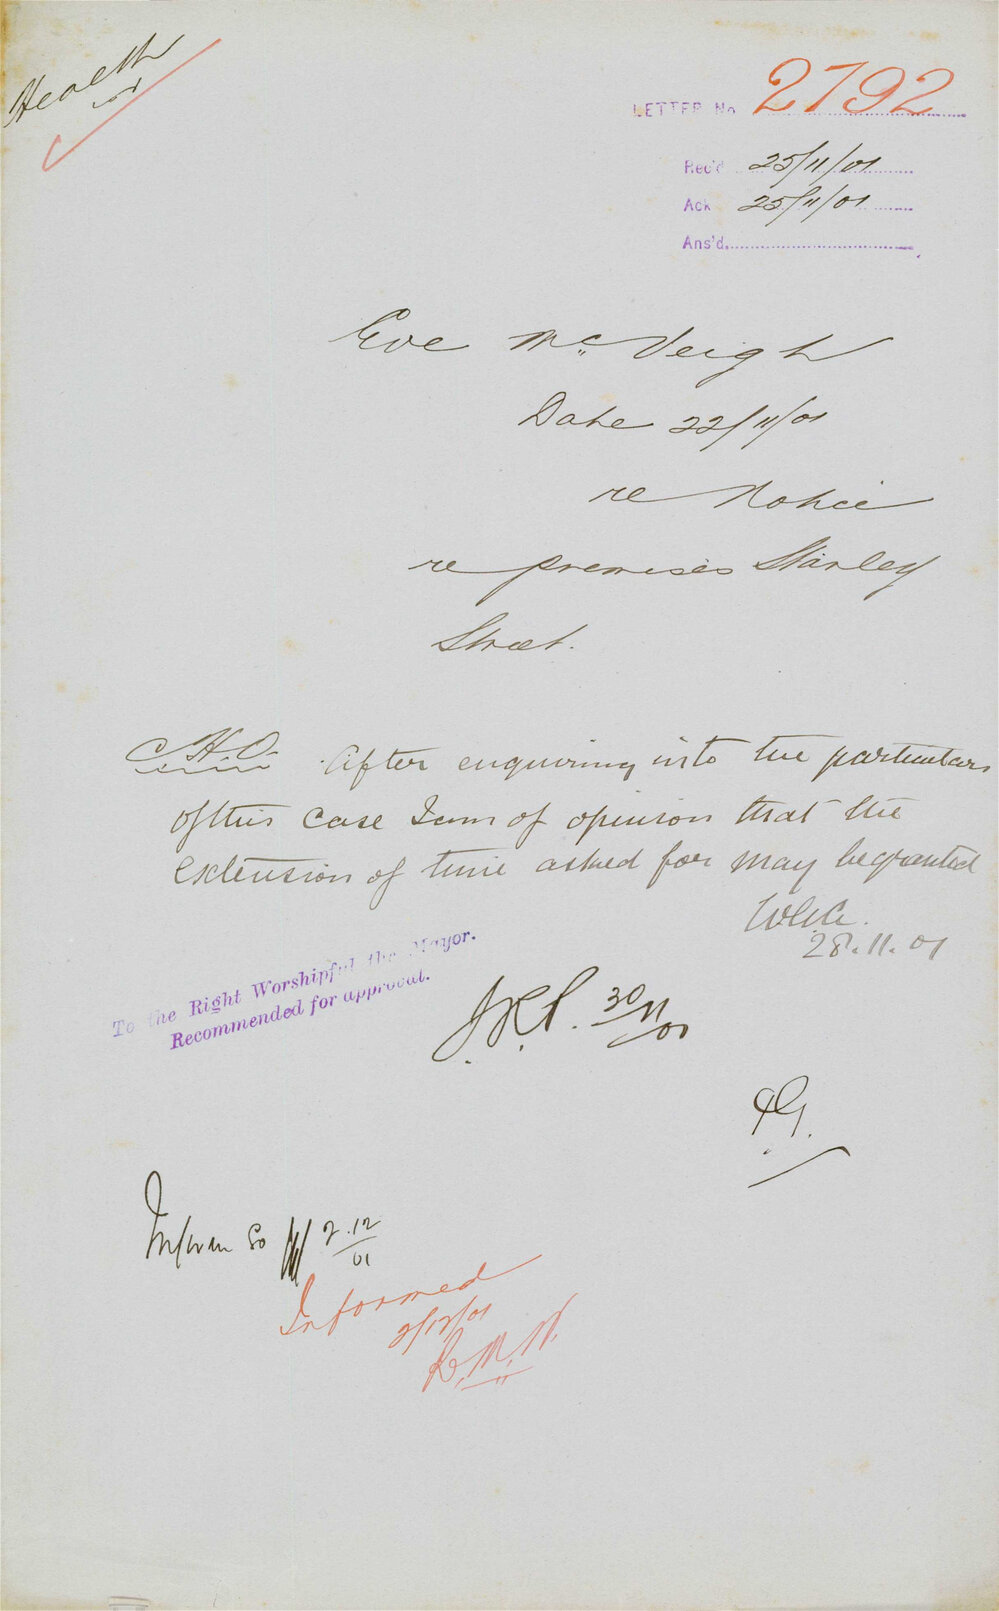 Health
LETTER No 2792
Rec'd 25/11/01
Ack 25/11/01
Ans'd
Eve McVeigh
Date 22/11/01
re Notice
re premises Stanley
Street.
C.H.O. After enquiring into the particulars
of this case I am of opinion that the
extension of time asked for may be granted
28.11.01
To the Right Worshipful the Mayor.
Recommended for approval.
30/11/01
Inform so 2.12/01
Informed
2/12/01
R.M.W.